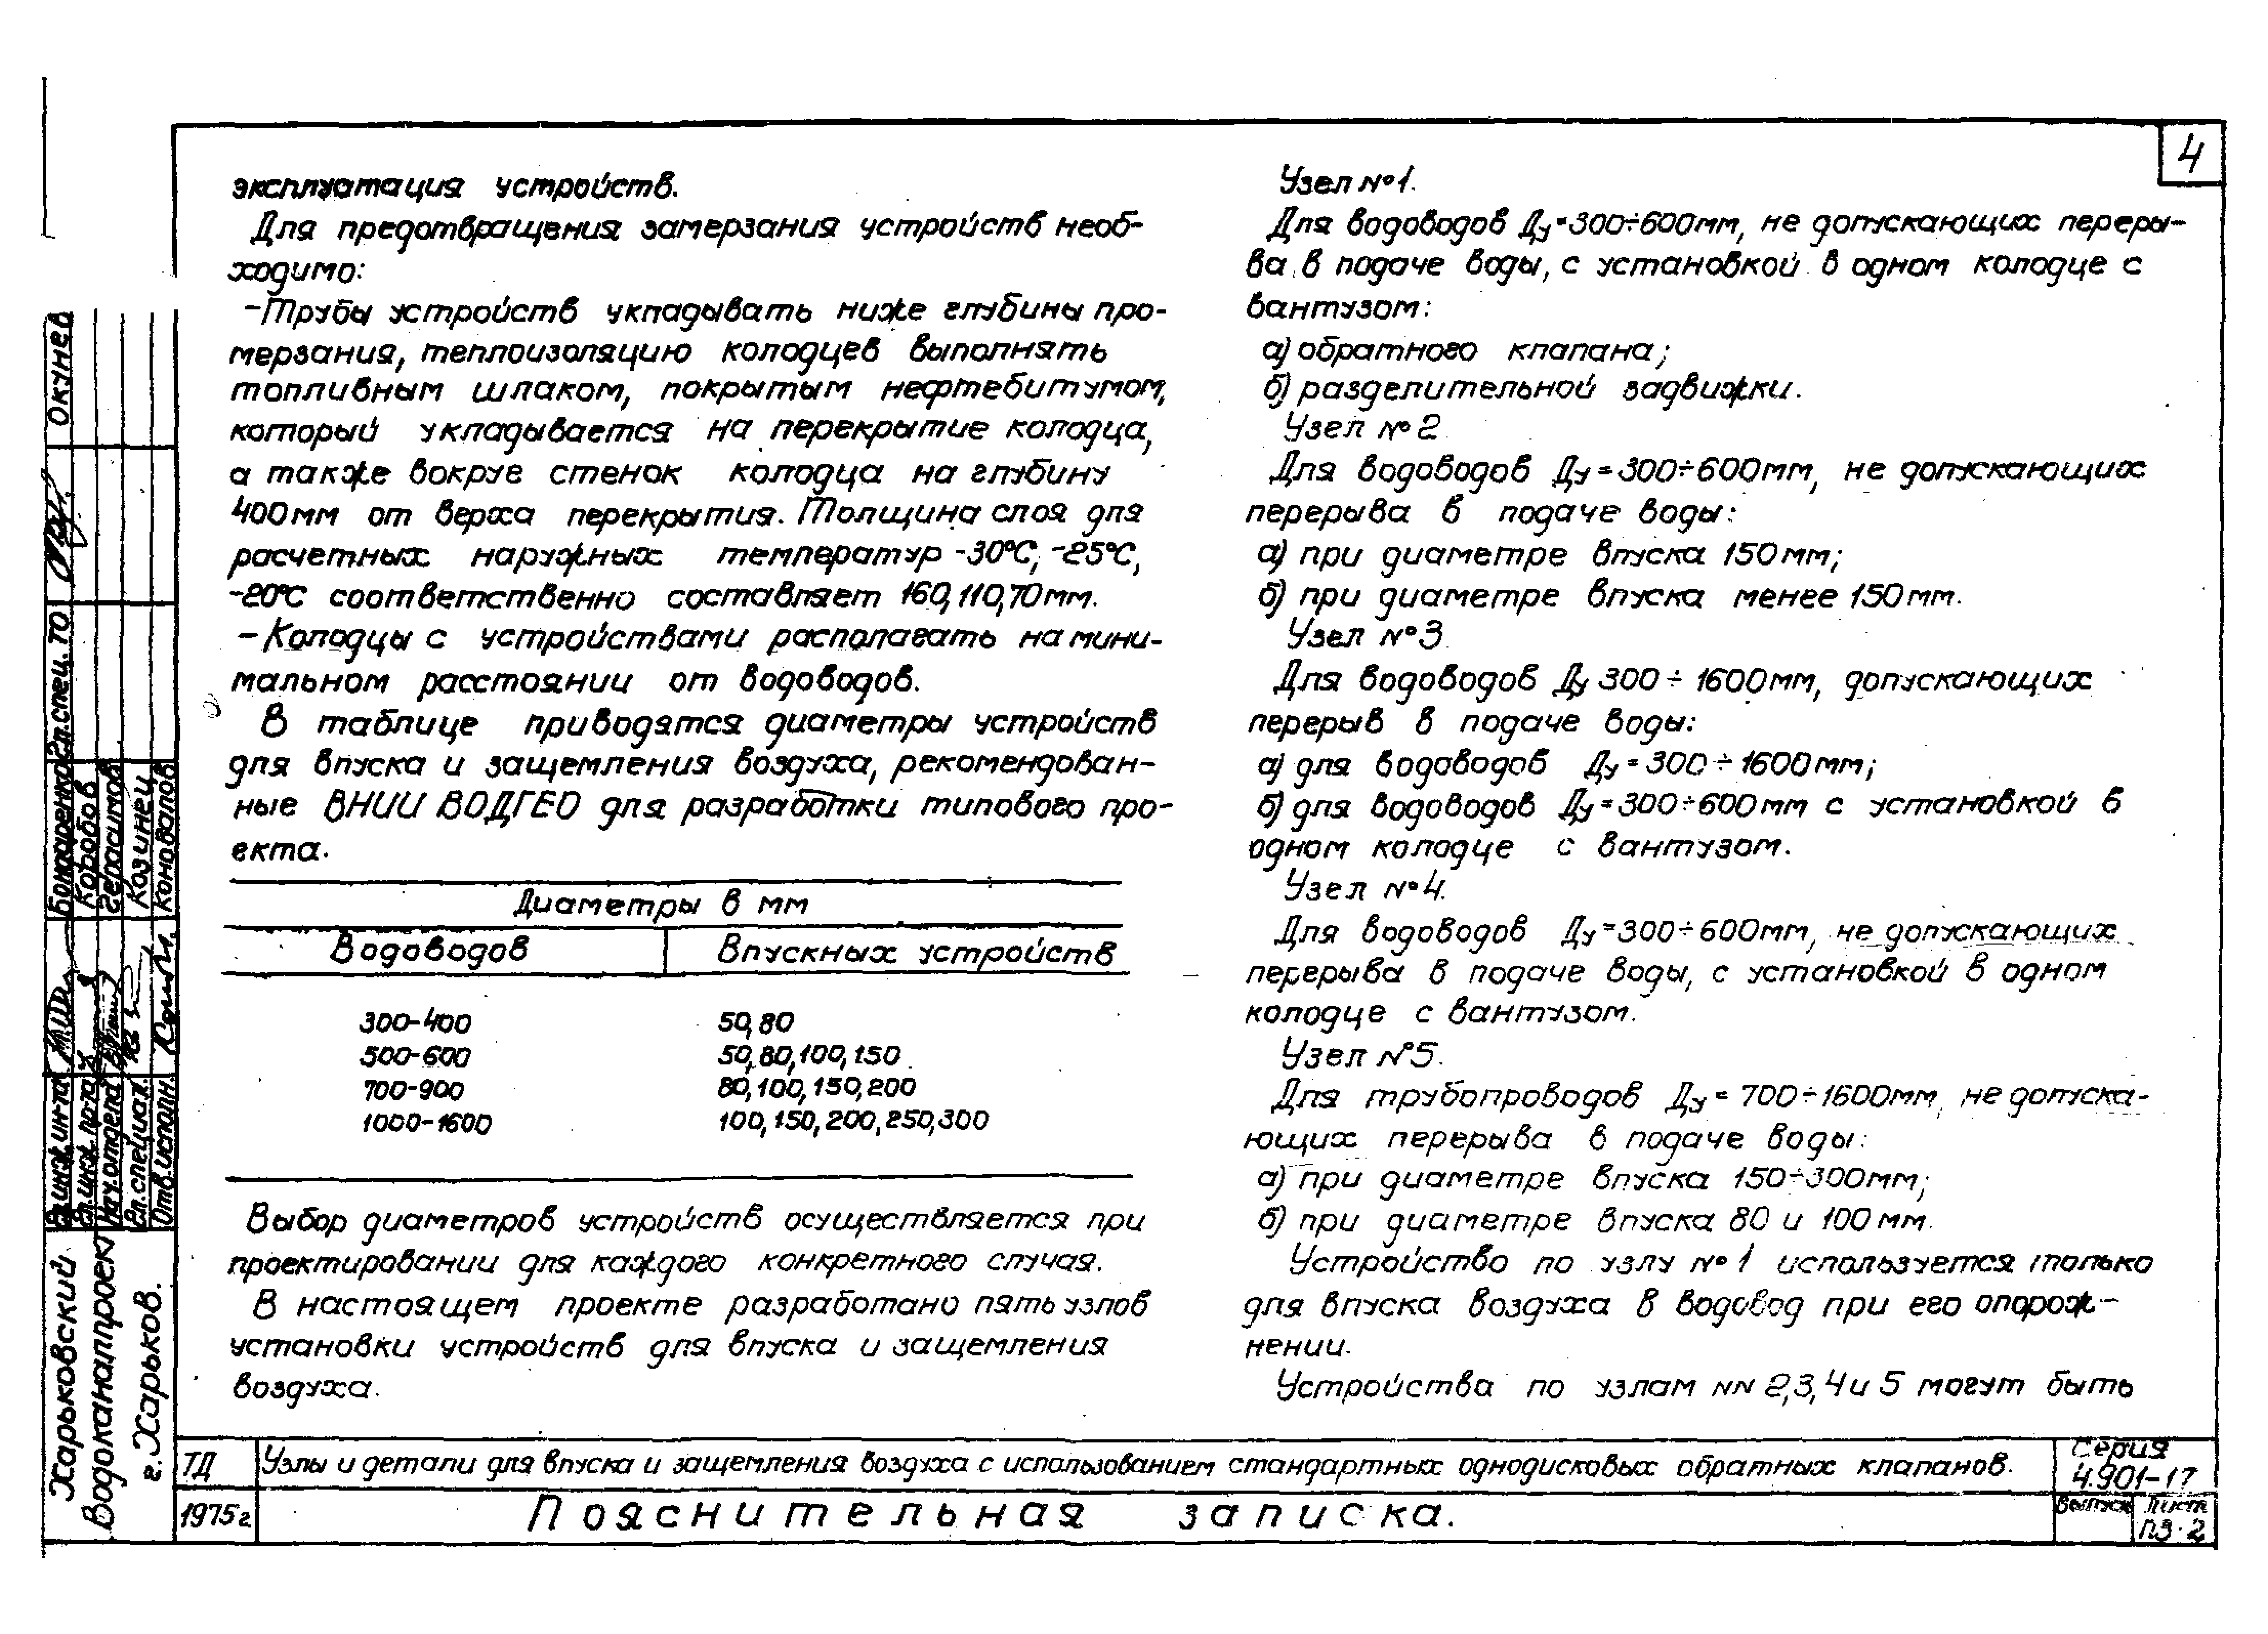 4
эксплуатация устройств.
Для предотвращения замерзания устройств необ-
ходимо:
-Трубы устройств укладывать ниже глубины про-
мерзания, теплоизоляцию колодцев выполнять
топливным шлаком, покрытым нефтебитумом,
который укладывается на перекрытие колодца,
а также вокруг стенок колодца на глубину
400мм от верха перекрытия. Толщина слоя для
расчетных наружных температур -30°С, -25°С,
-20°С соответственно составляет 160, 110, 70мм.
- Колодцы с устройствами располагать на мини-
мальном расстоянии от водоводов.
В таблице приводятся диаметры устройств
для впуска и защемления воздуха, рекомендован-
ные ВНИИ ВОДГЕО для разработки типового про-
екта.
Диаметры в мм
Водоводов Впускных устройств
300-400 50,80
500-600 50,80,100,150
700-900 80,100,150,200
1000-1600 100,150,200,250,300
Выбор диаметров устройств осуществляется при
проектировании для каждого конкретного случая.
В настоящем проекте разработано пять узлов
установки устройств для впуска и защемления
воздуха.
Узел №1.
Для водоводов Ду=300÷600мм, не допускающих переры-
ва в подаче воды, с установкой в одном колодце с
вантузом:
а) обратного клапана;
б) разделительной задвижки.
Узел №2
Для водоводов Ду=300÷600мм, не допускающих
перерыва в подаче воды:
а) при диаметре впуска 150мм;
б) при диаметре впуска менее 150мм.
Узел №3
Для водоводов Ду 300÷1600мм, допускающих
перерыв в подаче воды:
а) для водоводов Ду=300÷1600мм;
б) для водоводов Ду=300÷600мм с установкой в
одном колодце с вантузом.
Узел №4.
Для водоводов Ду=300÷600мм, не допускающих
перерыва в подаче воды, с установкой в одном
колодце с вантузом.
Узел №5.
Для трубопроводов Ду=700÷1600мм, не допуска-
ющих перерыва в подаче воды:
а) при диаметре впуска 150÷300мм;
б) при диаметре впуска 80 и 100мм.
Устройство по узлу №1 используется только
для впуска воздуха в водовод при его опорож-
нении.
Устройства по узлам NN 2,3,4 и 5 могут быть
ТД
1975г.
Узлы и детали для впуска и защемления воздуха с использованием стандартных однодисковых обратных клапанов.
Пояснительная записка.
Серия
4.901-17
Выпуск
Лист
ПЗ-2
Харьковский
Водоканалпроект
г. Харьков.
Гл.инж.ин-та Бондаренко
Гл.инж.пр-та Коробов
Нач.отдела Герасимов
Гл.специал. Козинец
Отв.исполн. Коновалов
Гл.спец.ТО Окунев